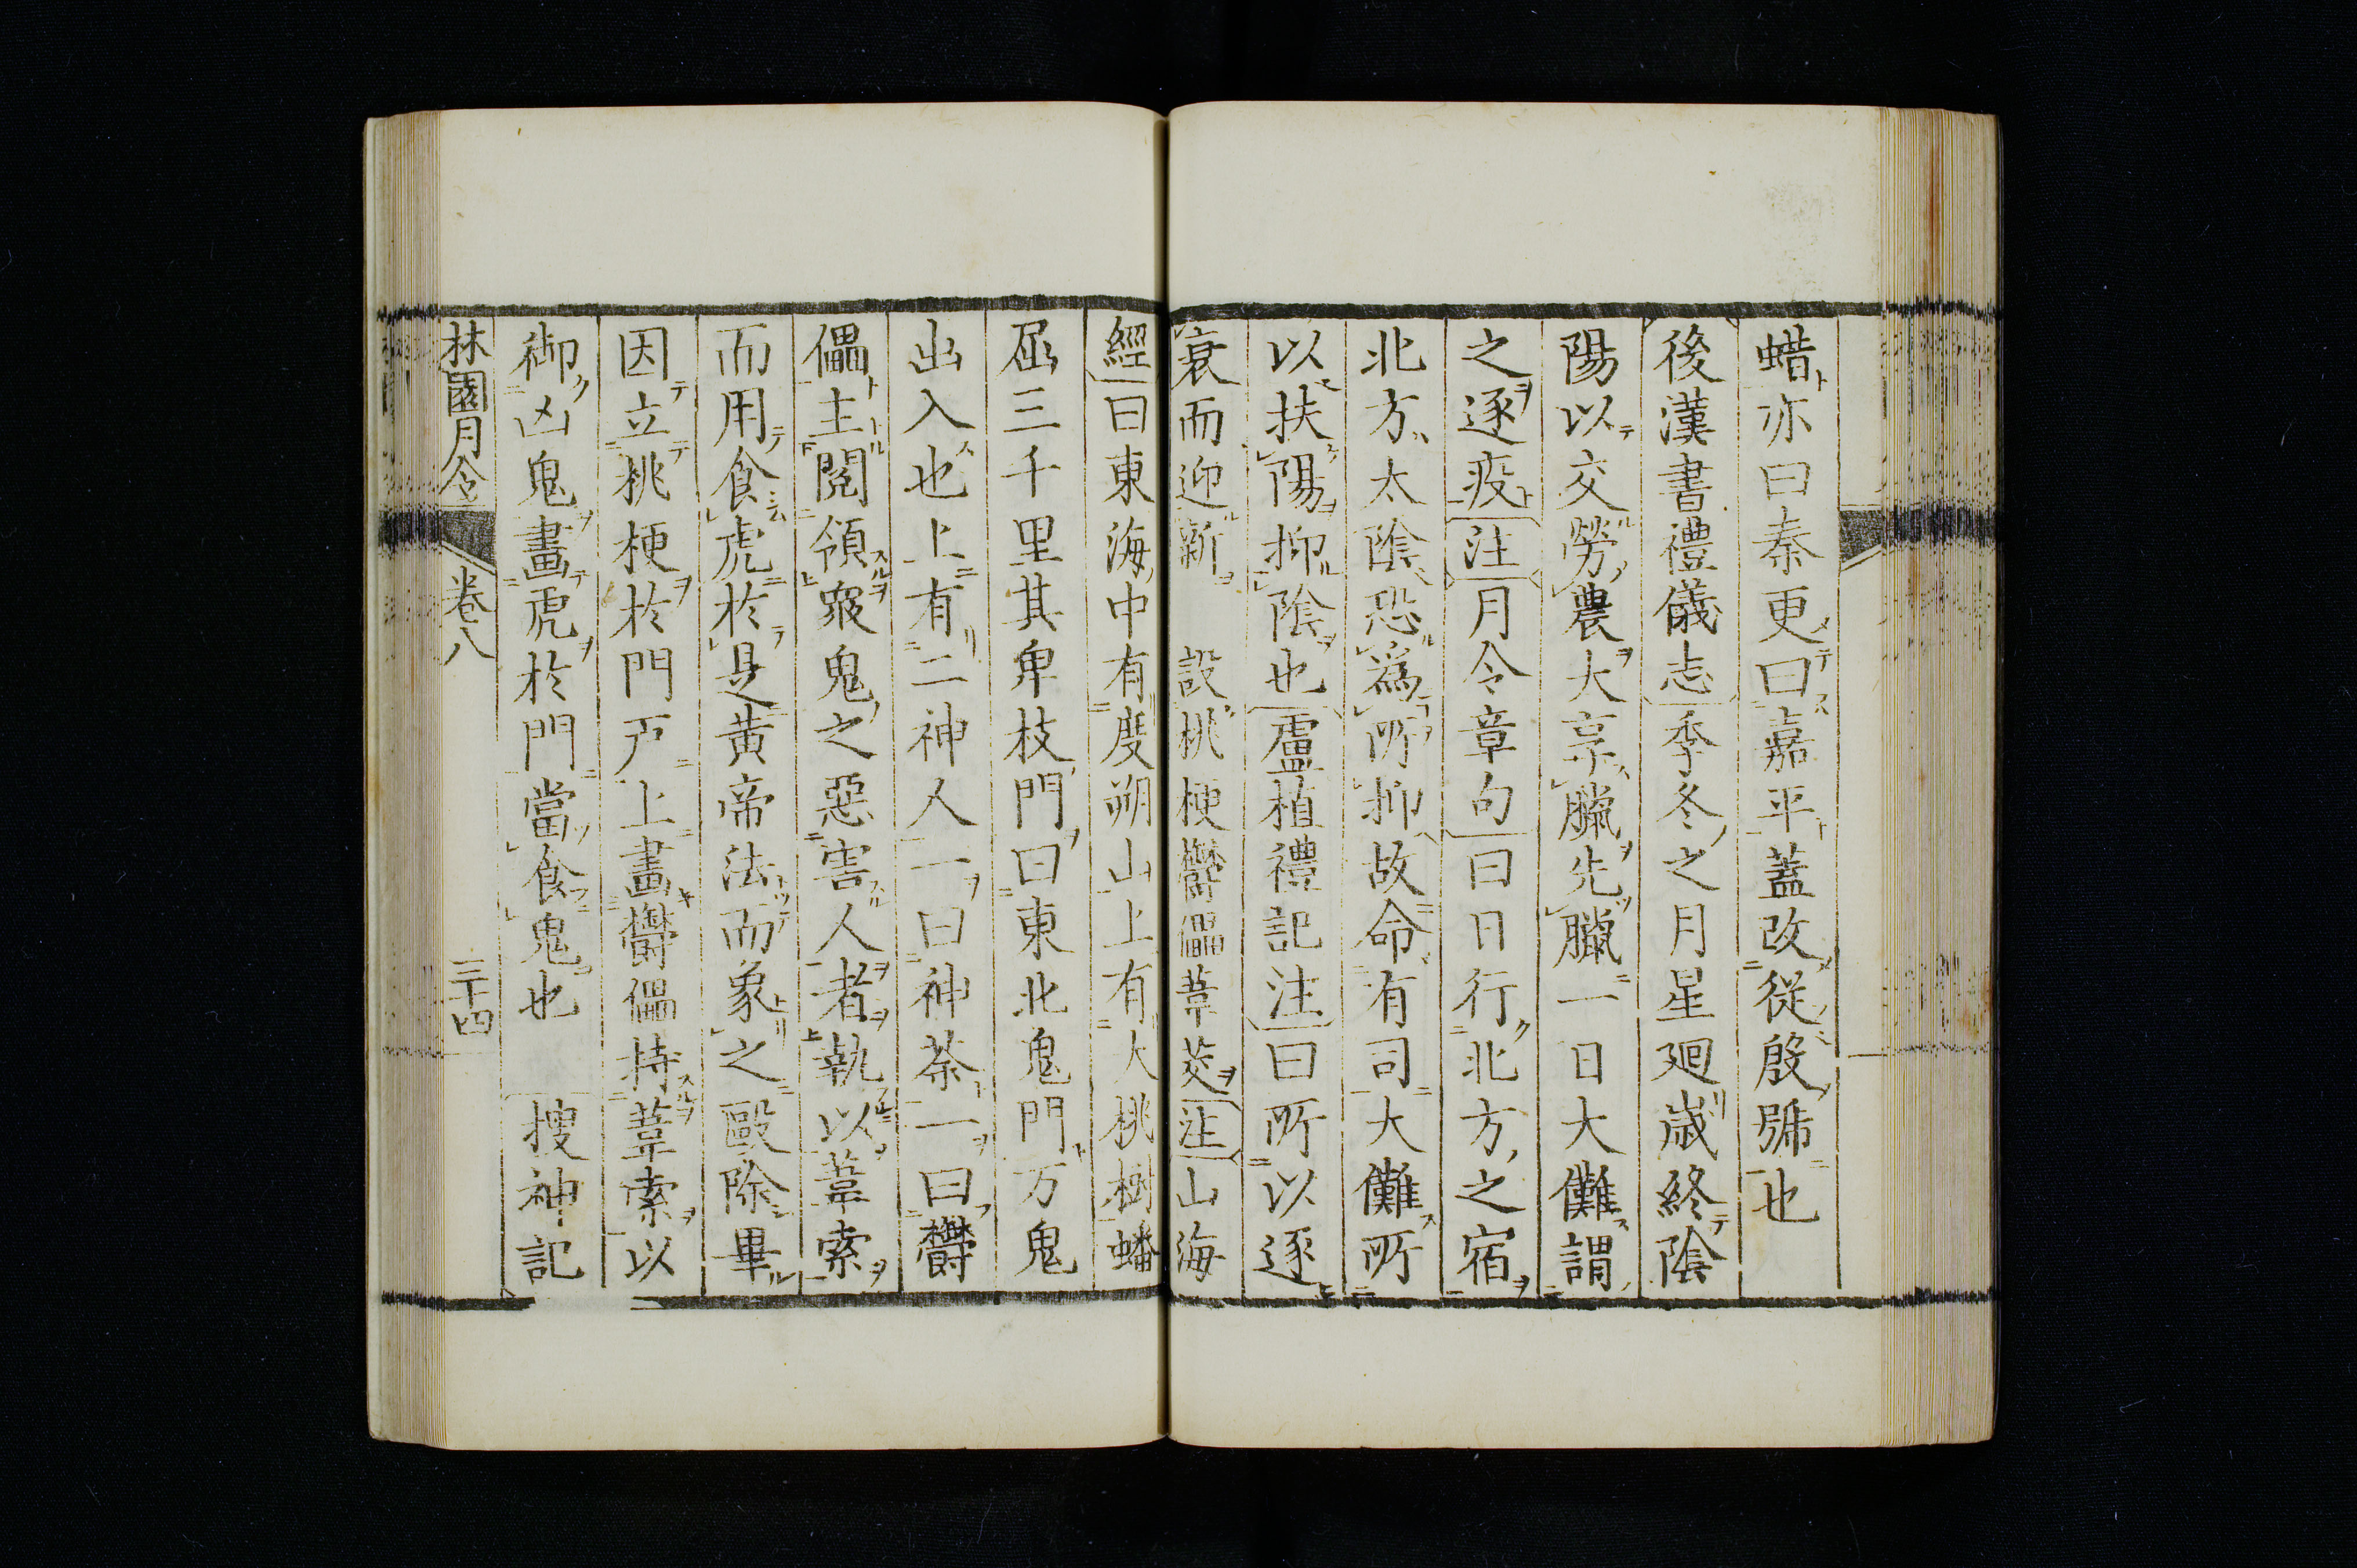 蜡亦曰秦更曰嘉平蓋改從殷號也
後漢書禮儀志季冬之月星廻歳終陰
陽以交勞農大享臘先臘一日大儺謂
之逐疫注月令章句曰日行北方之宿
北方太陰恐爲所抑故命有司大儺所
以扶陽抑陰也盧植禮記注曰所以逐
衰而迎新 設桃梗欝儡葦茭注山海
經曰東海中有度朔山上有大桃樹蟠
屈三千里其卑枝門曰東北鬼門万鬼
出入也上有二神人一曰神荼一曰欝
儡主閲領衆鬼之惡害人者執以葦索
而用食虎於是黄帝法而象之毆除畢
因立桃梗於門戸上畫欝儡持葦索以
御凶鬼畫虎於門當食鬼也 搜神記
林園月令 卷八 三十四